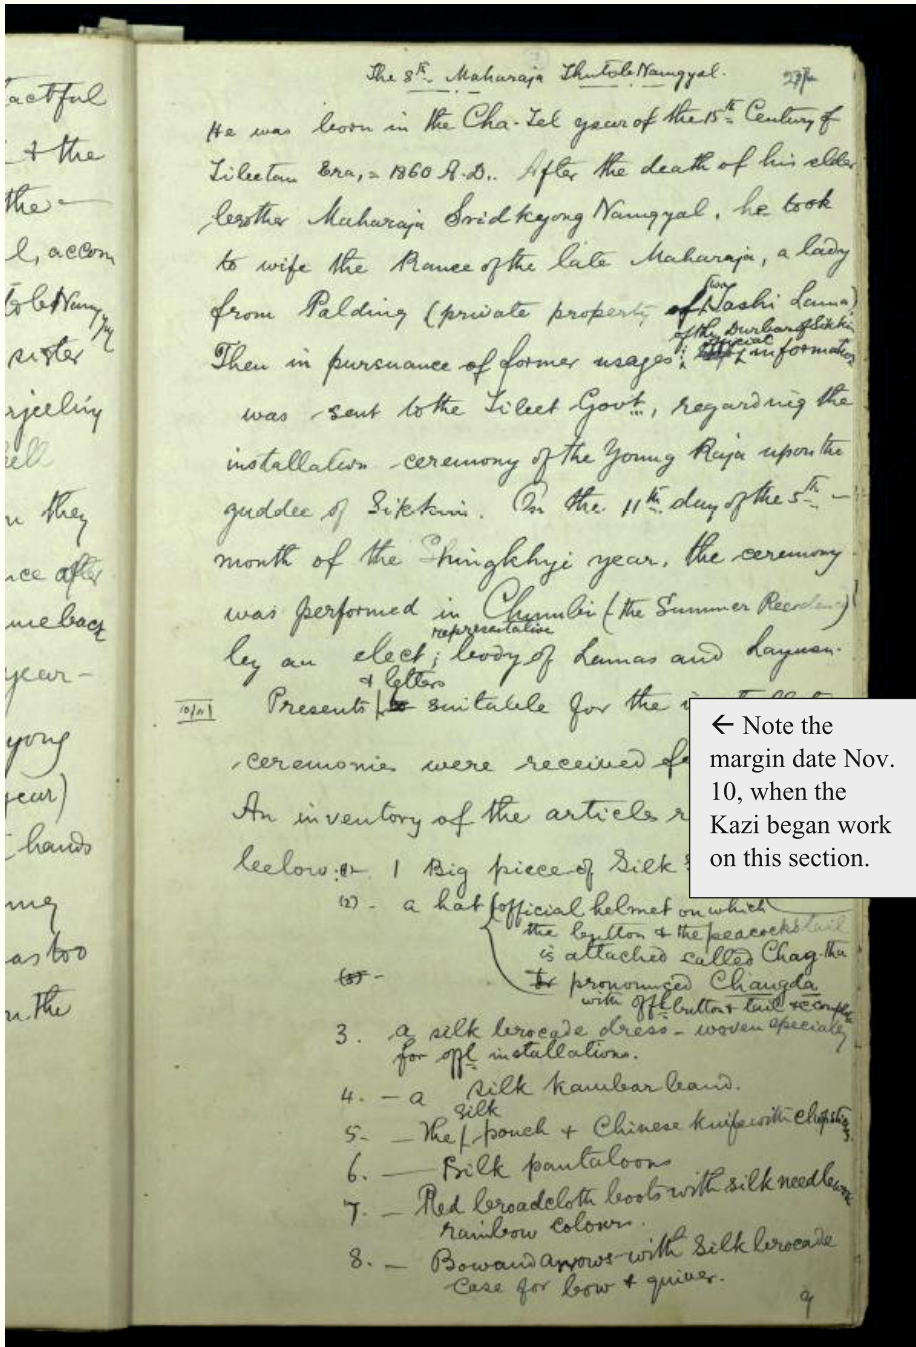 actful
& the
the —
l, accom
tobNamgyal
sister
rjeeling
ell
n they
nce after
me back
year —
yong
year)
hands
ing
as too
n the
The 8th Maharaja Thutob Namgyal.
He was born in the Cha-Tel year of the 15th Century of
Tibetan Era, = 1860 A.D.. After the death of his elder
brother Maharaja Sridkyong Namgyal, he took
to wife the Ranee of the late Maharaja, a lady
from Palding (private property of Tashi Lama)
of the Durbar of Sikkim
Then in pursuance of former usages; official information
was sent to the Tibet Govt., regarding the
installation ceremony of the Young Raja upon the
guddee of Sikkim. On the 11th day of the 5th —
month of the Shingkhyi year, the ceremony
was performed in Chumbi (the Summer Residence)
by an elect; representative body of Lamas and Laymen.
10/11 Presents & letters suitable for the
ceremonies were received
An inventory of the articles
below:- (1) - 1 Big piece of Silk
(2) - a hat (official helmet on which
the button & the peacocks tail
is attached called Chag-tha
(3) - pronounced Changda
with offl button & tail & complete
3. a silk brocade dress - woven specially
for offl installations.
4. — a silk kambar band.
5. — The silk pouch & Chinese knife with chopsticks
6. — Silk pantaloons
7. — Red broadcloth boots with silk needlework
rainbow colours.
8. — Bow and arrows with Silk brocade
case for bow & quiver.
9
← Note the
margin date Nov.
10, when the
Kazi began work
on this section.